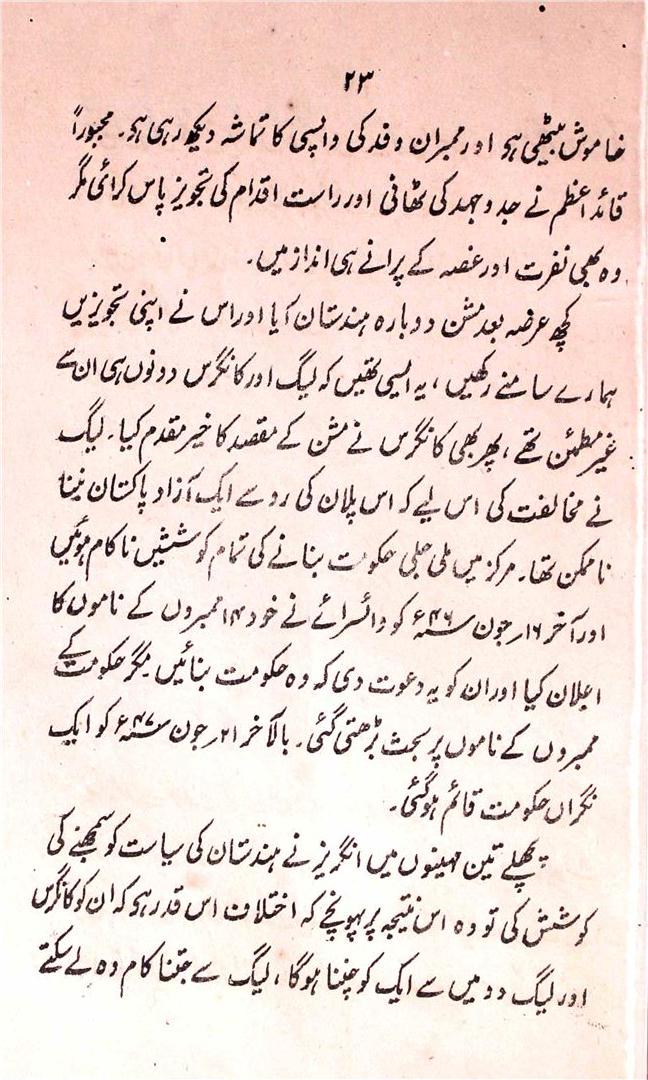 ۲۳
خاموش بیٹھی ہو اور ممبران وفد کی واپسی کا تماشہ دیکھ رہی ہو۔ مجبوراً
قائد اعظم نے جد وجہد کی ٹھانی اور راست اقدام کی تجویز پاس کرائی مگر
وہ بھی نفرت اور غصہ کے پرانے ہی انداز میں۔
کچھ عرضہ بعد مشن دوبارہ ہندستان آیا اور اس نے اپنی تجویزیں
ہمارے سامنے رکھیں، یہ ایسی تھیں کہ لیگ اور کانگرس دونوں ہی ان سے
غیر مطمئن تھے، پھر بھی کانگرس نے مشن کے مقصد کا خیر مقدم کیا۔ لیگ
نے مخالفت کی اس لیے کہ اس پلان کی رو سے ایک آزاد پاکستان بننا
ناممکن تھا۔ مرکز میں ملی جلی حکومت بنانے کی تمام کوششیں ناکام ہوئیں
اور آخر ۱۶ر جون سنہ ۴۶ء کو وائسرائے نے خود ۱۴ ممبروں کے ناموں کا
اعلان کیا اور ان کو یہ دعوت دی کہ وہ حکومت بنائیں۔ مگر حکومت کے
ممبروں کے ناموں پر بحث بڑھتی گئی۔ بالآخر ۲۱ر جون سنہ ۴۷ء کو ایک
نگراں حکومت قائم ہوگئی۔
پچھلے تین مہینوں میں انگریز نے ہندستان کی سیاست کو سمجھنے کی
کوشش کی تو وہ اس نتیجہ پر پہونچے کہ اختلاف اس قدر ہو کہ ان کو کانگرس
اور لیگ دو میں سے ایک کو چننا ہوگا، لیگ سے جتنا کام وہ لے سکتے